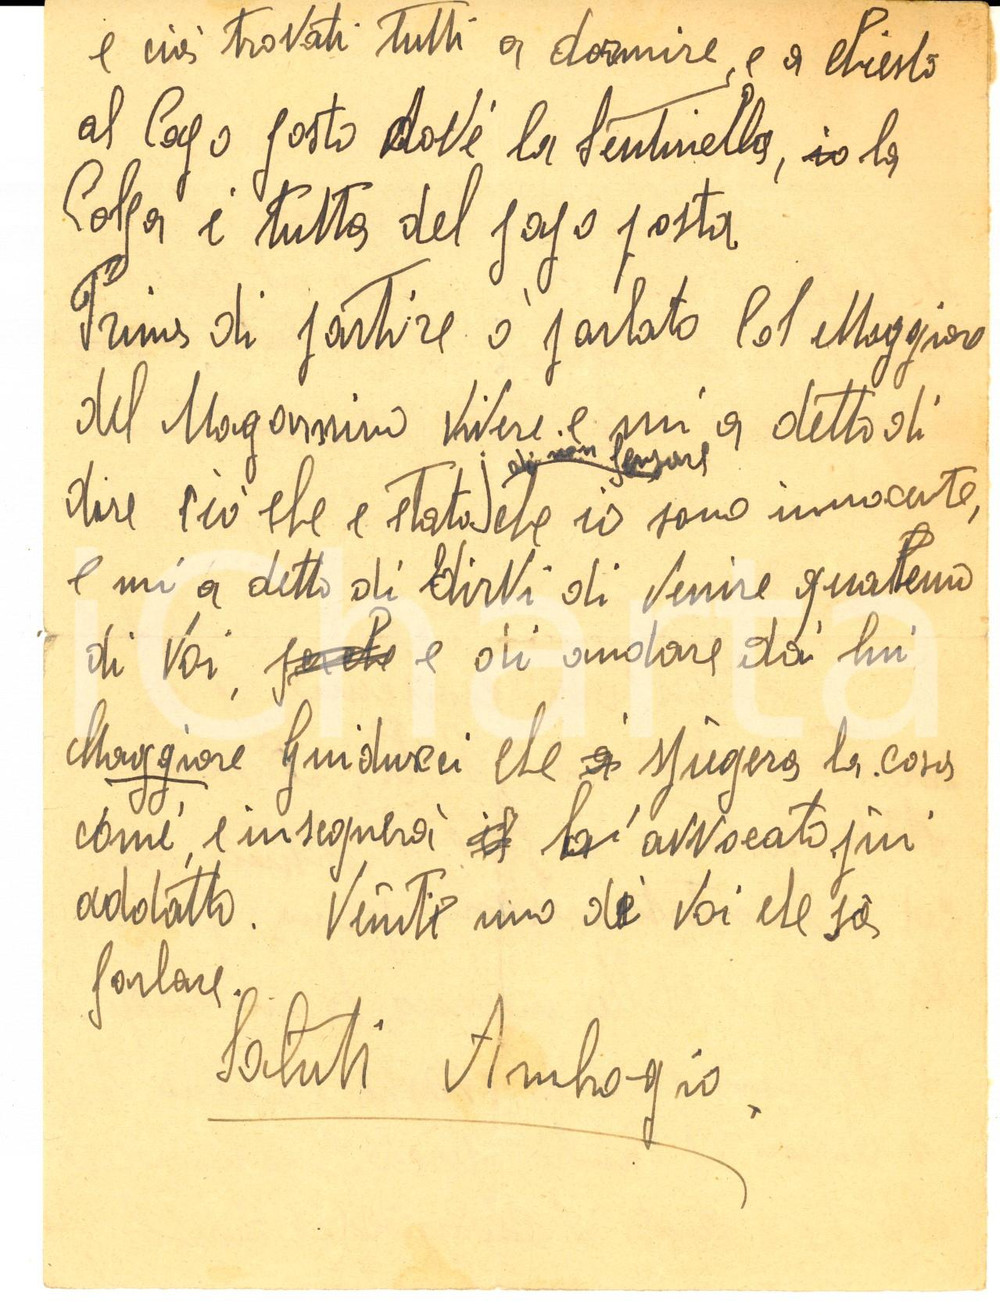 e cià trovati tutti a dormire, e a chiesto
al Capo posto dov'é la Sentinella, io la
Colpa é tutta del papo posta
Prima di partire ò parlato Col Maggiore
del Magassino Vivere e mi a detto di
dire ciò che e stato di non pensare che io sono innocente,
e mi a detto di dirVi di Venire qualcuno
di Voi, e di andare da lui
Maggiore Guiduzzi che spiegera la cosa
comé, e insegnerai l'avvocato più
addatto. Venite uno di Voi che sa
parlare.
Saluti Ambrogio.
iCharta